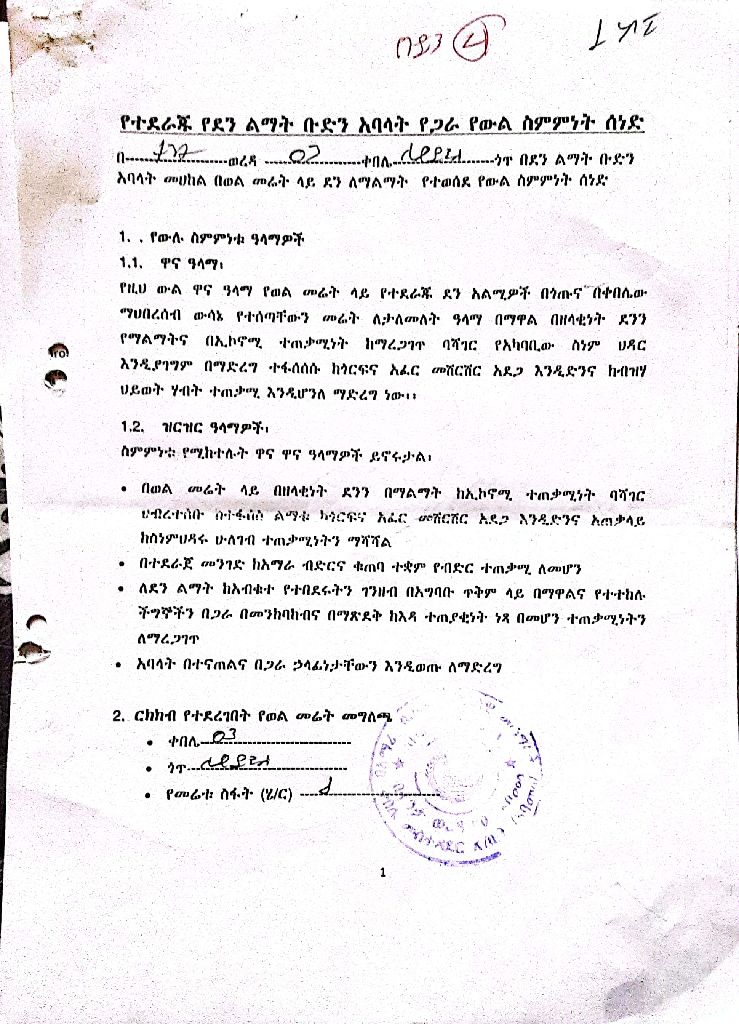 የተደራጁ የደን ልማት ቡድን አባላት የጋራ የውል ስምምነት ሰነድ
በ------------ወረዳ 03 ቀበሌ------------ጎጥ በደን ልማት ቡድን
አባላት መሀከል በወል መሬት ላይ ደን ለማልማት የተወሰደ የውል ስምምነት ሰነድ
1. . የውሉ ስምምነቱ ዓላማዎች
1.1. ዋና ዓላማ፡
የዚህ ውል ዋና ዓላማ የወል መሬት ላይ የተደራጁ ደን አልሚዎች በጎጡና በቀበሌው
ማህበረሰብ ውሳኔ የተሰጣቸውን መሬት ለታለመለት ዓላማ በማዋል በዘላቂነት ደንን
የማልማትና በኢኮኖሚ ተጠቃሚነት ከማረጋገጥ ባሻገር የአካባቢው ስነም ህዳር
እንዲያገግም በማድረግ ተፋሰሰሱ ከጎርፍና አፈር መሸርሸር አደጋ እንዲድንና ከብዝሃ
ህይወት ሃብት ተጠቃሚ እንዲሆንለ ማድረግ ነው፡፡
1.2. ዝርዝር ዓላማዎች፡
ስምምነቱ የሚከተሉት ዋና ዋና ዓላማዎች ይኖሩታል፡
• በወል መሬት ላይ በዘላቂነት ደንን በማልማት ከኢኮኖሚ ተጠቃሚነት ባሻገር
ህብረተሰቡ በተፋሰስ ልማቱ ከጎርፍና አፈር መሸርሸር አደጋ እንዲድንና አጠቃላይ
ከስነምህዳሩ ሁለገብ ተጠቃሚነትን ማሻሻል
• በተደራጀ መንገድ ከአማራ ብድርና ቁጠባ ተቋም የብድር ተጠቃሚ ለመሆን
• ለደን ልማት ከአብቁተ የተበደሩትን ገንዘብ በአግባቡ ጥቅም ላይ በማዋልና የተተከሉ
ችግኞችን በጋራ በመንከባከብና በማጽደቅ ከእዳ ተጠያቂነት ነጻ በመሆን ተጠቃሚነትን
ለማረጋገጥ
• አባላት በተናጠልና በጋራ ኃላፊነታቸውን እንዲወጡ ለማድረግ
2. ርክክብ የተደረገበት የወል መሬት መግለጫ
• ቀበሌ 03
• ጎጥ
• የመሬቱ ስፋት (ሄ/ር)
1